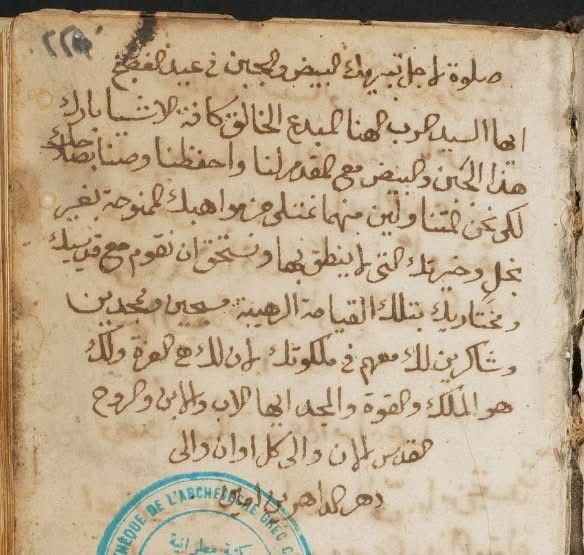 ٢٢٥
صلوة لاجل تبريك البيض والجبن في عيد الفصح
ايها السيد الرب الهنا المبدع الخالق كافة الاشيا بارك
هذا الجبن والبيض مع المقدم لنا واحفظنا وصننا بصلاحك
لكي نحن المتناولين منهما نمتلى من مواهبك الممنوحة بغير
بخل وخيرتك التي لا ينطق بها ونستحق ان نقوم مع قديسيك
ومختاريك بتلك القيامة الرهيبة مسبحين وممجدين
وشاكرين لك معهم في ملكوتك لان لك هي العزة ولك
هو الملك والقوة والمجد ايها الاب والابن والروح
القدس الان والى كل اوان والى
دهر الداهرين امين
THÈQUE DE L'ARCHEVÊCHÉ GREC C
مكتبة مطرانية